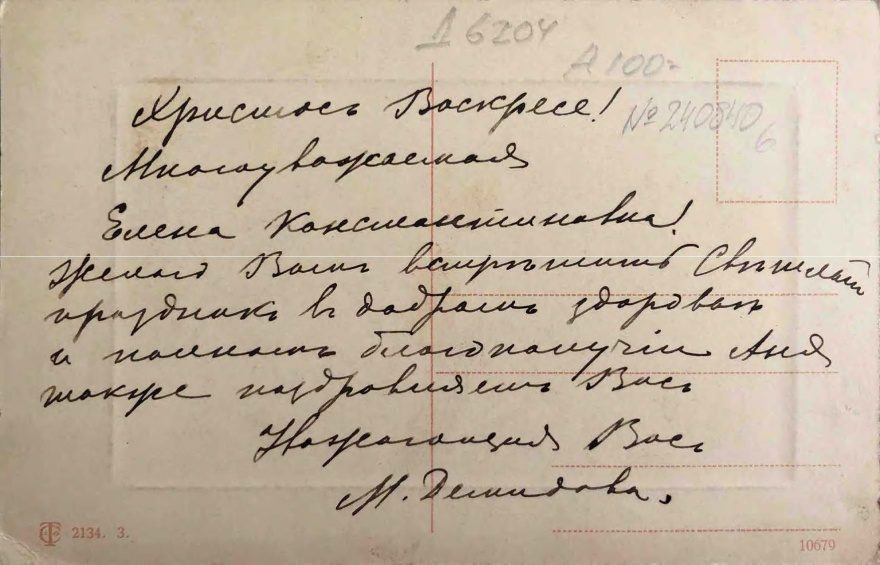 Д 6204
А 100-
№ 240840
6
Христосъ Воскресе!
Многоуважаемая
Елена Константиновна!
Желаю Вамъ встрѣтить Свѣтлый
праздникъ въ добромъ здоровьи
и полномъ благополучіи Аня
также поздравляетъ Васъ
Уважающая Васъ
М. Демидова.
2134. 3.
10679